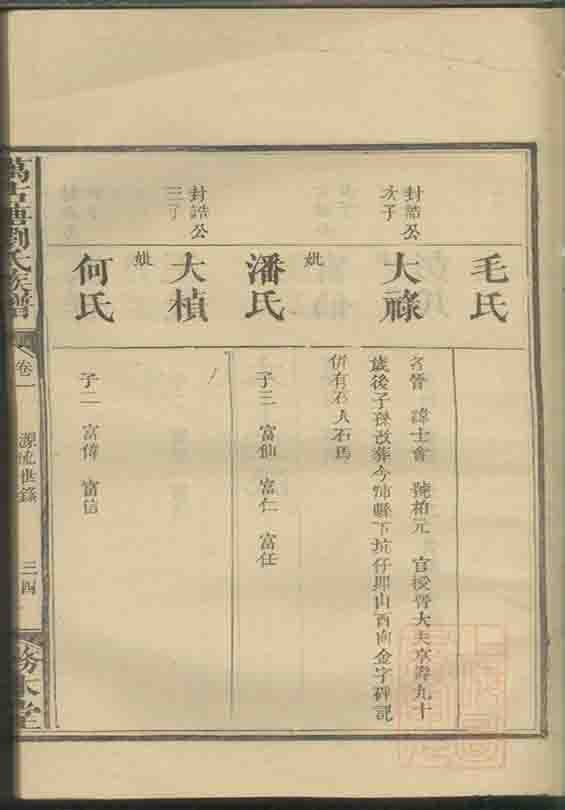 毛氏
封誥公
次子
大祿
名晉 諱士會 號柏元 官授晉大夫享壽九十
歲後子孫改葬今縣下坑仔邱山酉向金字碑記
併有石人石馬
妣
潘氏
子三 富仙 富仁 富任
封誥公
三子
大楨
妣
何氏
子二 富偉 富信
萬古塘劉氏族譜
卷一
源流世錄
三四
務本堂